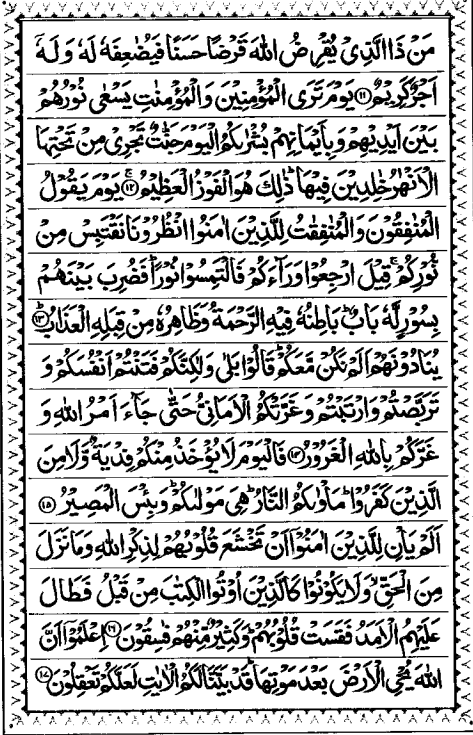 مَنْ ذَا الَّذِىْ يُقْرِضُ اللّٰهَ قَرْضًا حَسَنًا فَيُضٰعِفَهٗ لَهٗ وَلَهٗۤ
اَجْرٌ كَرِيْمٌ ۝۱۱ يَوْمَ تَرَى الْمُؤْمِنِيْنَ وَالْمُؤْمِنٰتِ يَسْعٰى نُوْرُهُمْ
بَيْنَ اَيْدِيْهِمْ وَبِاَيْمَانِهِمْ بُشْرٰىكُمُ الْيَوْمَ جَنّٰتٌ تَجْرِىْ مِنْ تَحْتِهَا
الْاَنْهٰرُ خٰلِدِيْنَ فِيْهَا ؕ ذٰلِكَ هُوَ الْفَوْزُ الْعَظِيْمُ ۝۱۲ يَوْمَ يَقُوْلُ
الْمُنٰفِقُوْنَ وَالْمُنٰفِقٰتُ لِلَّذِيْنَ اٰمَنُوا انْظُرُوْنَا نَقْتَبِسْ مِنْ
نُّوْرِكُمْ ۚ قِيْلَ ارْجِعُوْا وَرَآءَكُمْ فَالْتَمِسُوْا نُوْرًا ؕ فَضُرِبَ بَيْنَهُمْ
بِسُوْرٍ لَّهٗ بَابٌ ؕ بَاطِنُهٗ فِيْهِ الرَّحْمَةُ وَظَاهِرُهٗ مِنْ قِبَلِهِ الْعَذَابُ ؕ ۝۱۳
يُنَادُوْنَهُمْ اَلَمْ نَكُنْ مَّعَكُمْ ؕ قَالُوْا بَلٰى وَلٰكِنَّكُمْ فَتَنْتُمْ اَنْفُسَكُمْ وَ
تَرَبَّصْتُمْ وَارْتَبْتُمْ وَغَرَّتْكُمُ الْاَمَانِىُّ حَتّٰى جَآءَ اَمْرُ اللّٰهِ وَ
غَرَّكُمْ بِاللّٰهِ الْغَرُوْرُ ۝۱۴ فَالْيَوْمَ لَا يُؤْخَذُ مِنْكُمْ فِدْيَةٌ وَّلَا مِنَ
الَّذِيْنَ كَفَرُوْا ؕ مَاْوٰىكُمُ النَّارُ ؕ هِىَ مَوْلٰىكُمْ ؕ وَبِئْسَ الْمَصِيْرُ ۝۱۵
اَلَمْ يَاْنِ لِلَّذِيْنَ اٰمَنُوْۤا اَنْ تَخْشَعَ قُلُوْبُهُمْ لِذِكْرِ اللّٰهِ وَمَا نَزَلَ
مِنَ الْحَقِّ ۙ وَلَا يَكُوْنُوْا كَالَّذِيْنَ اُوْتُوا الْكِتٰبَ مِنْ قَبْلُ فَطَالَ
عَلَيْهِمُ الْاَمَدُ فَقَسَتْ قُلُوْبُهُمْ ؕ وَكَثِيْرٌ مِّنْهُمْ فٰسِقُوْنَ ۝۱۶ اِعْلَمُوْۤا اَنَّ
اللّٰهَ يُحْىِ الْاَرْضَ بَعْدَ مَوْتِهَا ؕ قَدْ بَيَّنَّا لَكُمُ الْاٰيٰتِ لَعَلَّكُمْ تَعْقِلُوْنَ ۝۱۷